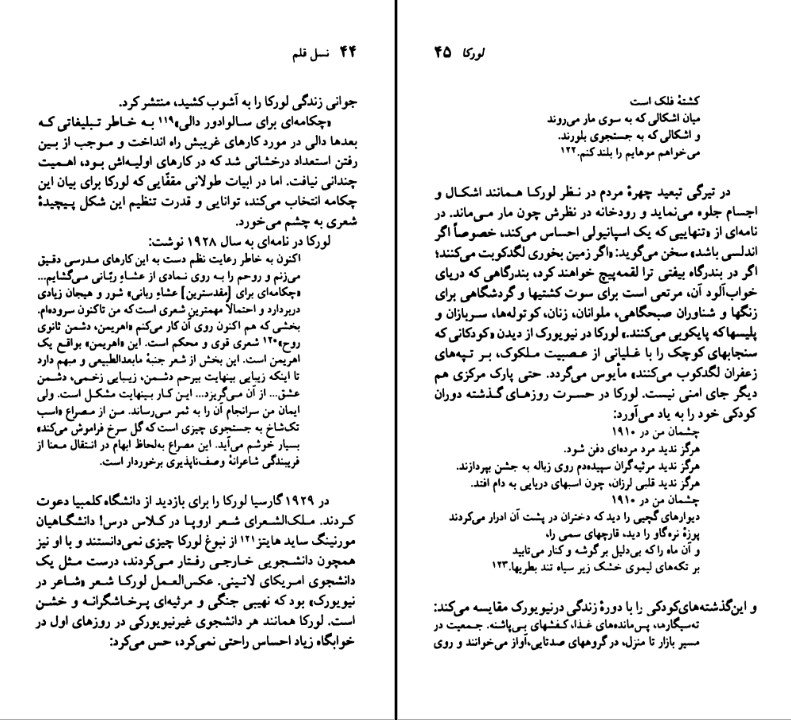 ۴۴ نسل قلم
جوانی زندگی لورکا را به آشوب کشید، منتشر کرد.
«چکامه‌ای برای سالوادور دالی»۱۱۹ به خاطر تبلیغاتی که
بعدها دالی در مورد کارهای غریبش راه انداخت و موجب از بین
رفتن استعداد درخشانی شد که در کارهای اولیه‌اش بود، اهمیت
چندانی نیافت. اما در ابیات طولانی مقفّایی که لورکا برای بیان این
چکامه انتخاب می‌کند، توانایی و قدرت تنظیم این شکل پیچیدهٔ
شعری به چشم می‌خورد.
لورکا در نامه‌ای به سال ۱۹۲۸ نوشت:
اکنون به خاطر رعایت نظم دست به این کارهای مدرسی دقیق
می‌زنم و روحم را به روی نمادی از عشاءِ ربّانی می‌گشایم...
«چکامه‌ای برای [مقدسترین] عشاءِ ربانی» شور و هیجان زیادی
دربردارد و احتمالاً مهمترین شعری است که من تاکنون سروده‌ام.
بخشی که هم اکنون روی آن کار می‌کنم «اهریمن، دشمن ثانوی
روح»۱۲۰ شعری قوی و محکم است. این «اهریمن» بواقع یک
اهریمن است. این بخش از شعر جنبهٔ مابعدالطبیعی و مبهم دارد
تا اینکه زیبایی بینهایت بیرحم دشمن، زیبایی زخمی، دشمن
عشق... از آن می‌گریزد... این کار بینهایت مشکل است. ولی
ایمان من سرانجام آن را به ثمر می‌رساند. من از مصراع «اسب
تک‌شاخ به جستجوی چیزی است که گل سرخ فراموش می‌کند»
بسیار خوشم می‌آید. این مصراع به‌لحاظ ابهام در انتقال معنا از
فریبندگی شاعرانهٔ وصف‌ناپذیری برخوردار است.
در ۱۹۲۹ گارسیا لورکا را برای بازدید از دانشگاه کلمبیا دعوت
کردند. ملک‌الشعرای شعر اروپا در کلاس درس! دانشگاهیان
مورنینگ ساید هایتز۱۲۱ از نبوغ لورکا چیزی نمی‌دانستند و با او نیز
همچون دانشجویی خارجی رفتار می‌کردند، درست مثل یک
دانشجوی امریکای لاتینی. عکس‌العمل لورکا شعر «شاعر در
نیویورک» بود که نهیبی جنگی و مرثیه‌ای پرخاشگرانه و خشن
است. لورکا همانند هر دانشجوی غیرنیویورکی در روزهای اول در
خوابگاه زیاد احساس راحتی نمی‌کرد، حس می‌کرد:
لورکا ۴۵
کشتهٔ فلک است
میان اشکالی که به سوی مار می‌روند
و اشکالی که به جستجوی بلورند.
می‌خواهم موهایم را بلند کنم.۱۲۲
در تیرگی تبعید چهرهٔ مردم در نظر لورکا همانند اشکال و
اجسام جلوه می‌نماید و رودخانه در نظرش چون مار می‌ماند. در
نامه‌ای از «تنهاییی که یک اسپانیولی احساس می‌کند، خصوصاً اگر
اندلسی باشد» سخن می‌گوید: «اگر زمین بخوری لگدکوبت می‌کنند؛
اگر در بندرگاه بیفتی ترا لقمه‌پیچ خواهند کرد، بندرگاهی که دریای
خواب‌آلود آن، مرتعی است برای سوت کشتیها و گردشگاهی برای
زنگها و شناوران صبحگاهی، ملوانان، زنان، کوتوله‌ها، سربازان و
پلیسها که پایکوبی می‌کنند.» لورکا در نیویورک از دیدن «کودکانی که
سنجابهای کوچک را با غلیانی از عصبیت ملکوک، بر تپه‌های
زعفران لگدکوب می‌کنند» مأیوس می‌گردد. حتی پارک مرکزی هم
دیگر جای امنی نیست. لورکا در حسرت روزهای گذشته دوران
کودکی خود را به یاد می‌آورد:
چشمان من در ۱۹۱۰
هرگز ندید مرد مرده‌ای دفن شود.
هرگز ندید مرثیه‌گران سپیده‌دم روی زباله به جشن بپردازند.
هرگز ندید قلبی لرزان، چون اسبهای دریایی به دام افتد.
چشمان من در ۱۹۱۰
دیوارهای گچیی را دید که دختران در پشت آن ادرار می‌کردند
پوزهٔ نره‌گاو را دید، قارچهای سمی را،
و آن ماه را که بی‌دلیل بر گوشه و کنار می‌تابید
بر تکه‌های لیموی خشک زیر سیاه تند بطریها.۱۲۳
و این گذشته‌های کودکی را با دورهٔ زندگی در نیویورک مقایسه می‌کند:
ته‌سیگارها، پس‌مانده‌های غذا، کفشهای بی‌پاشنه. جمعیت در
مسیر بازار تا منزل، در گروههای صدتایی، آواز می‌خوانند و روی